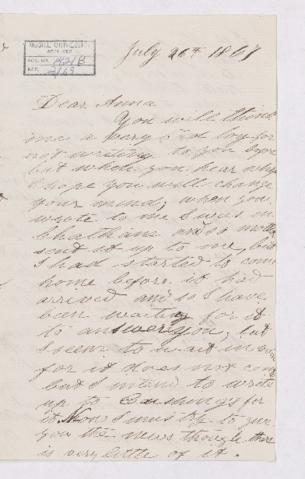 McGILL UNIVERSITY
ARCHIVES
ACC. NO. 1921B
REF. 2/69
July 26th 1867
Dear Anna
You will think
me a very bad boy for
not writing to you before
but when you hear why
I hope you will change
your mind; when you
wrote to me I was in
Chatham and so mother
sent it up to me, but
I had started to come
home before it had
arrived and so I have
been waiting for it
to answer you, but
I seem to wait in vain
for it does not come
but I intend to write
up to Cushings for
it. Now I must try to give
you the news though there
is very little of it.